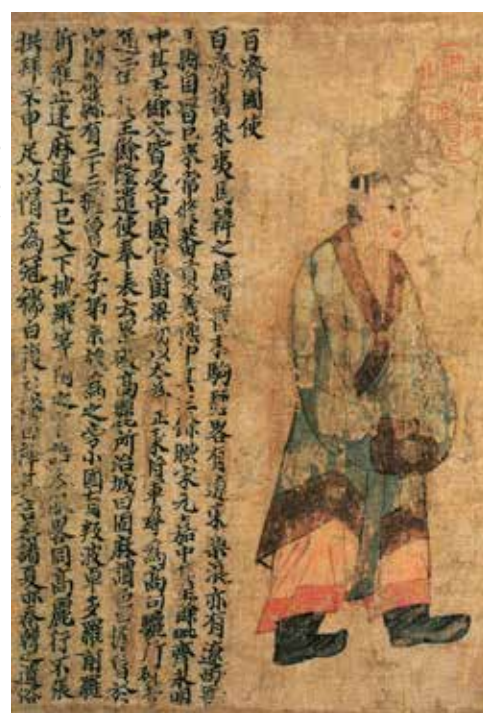 百濟國使
百濟舊來夷馬韓之屬晉末駒驪畧有遼東樂浪亦有遼西晉
平縣自晉已來常修蕃貢義熙中其王餘腆宋元嘉中其王餘毗齊永明
中其王餘太皆受中國官爵梁初以太為征東將軍尋為高句驪所破普
通二年其王餘隆遣使奉表云累破高麗所治城曰固麻謂邑曰檐魯於
中國郡縣有二十二檐魯分子弟宗族為之旁小國有叛波卓多羅前羅
斯羅止迷麻連上巳文下枕羅等附之言語衣服畧同高麗行不張
拱拜不申足以帽為冠襦曰複衫袴曰褌其言參諸夏亦秦韓之遺俗